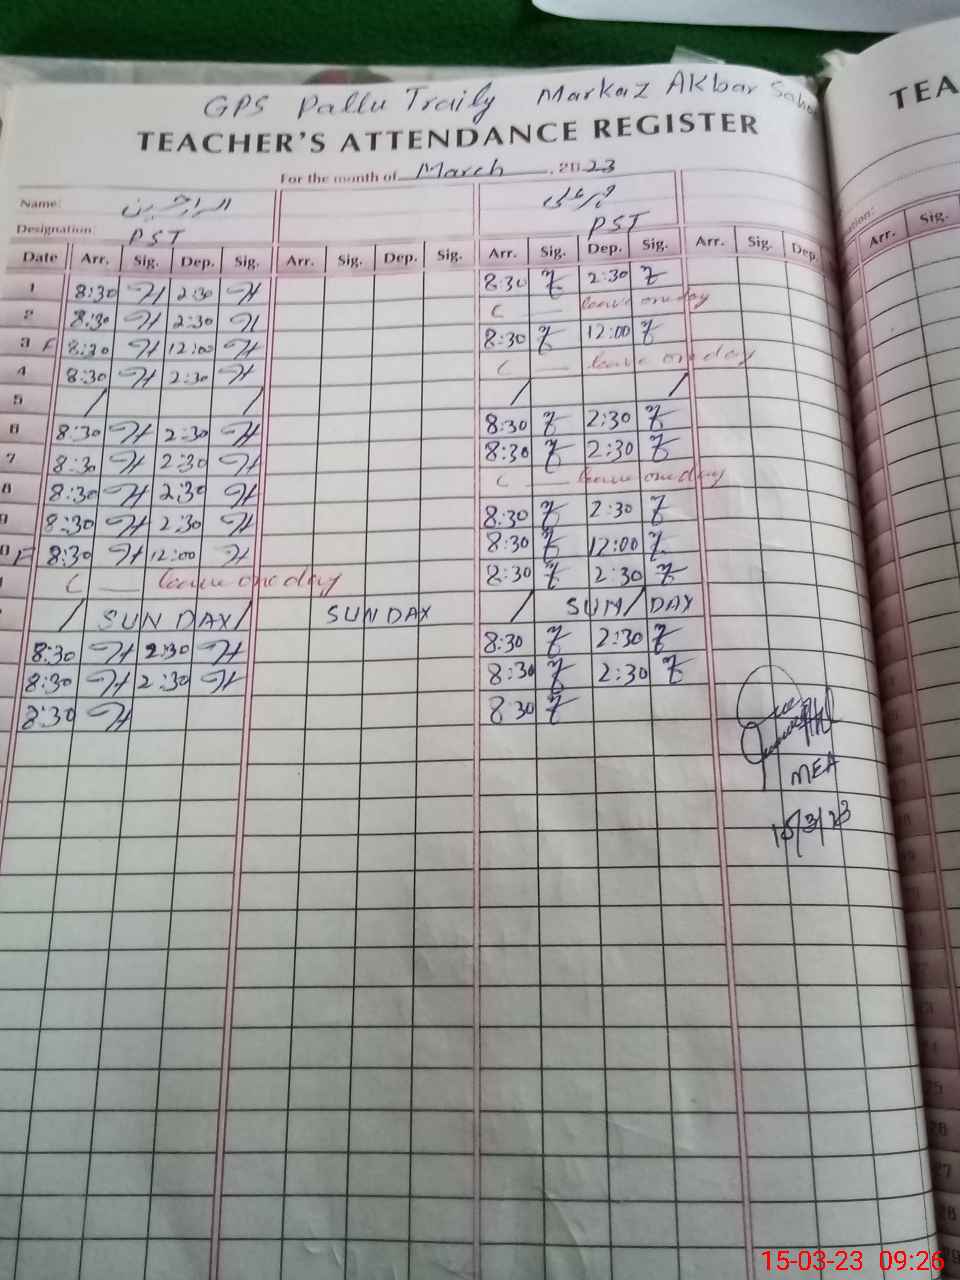 GPS Pallu Traily Markaz Akbar
TEACHER'S ATTENDANCE REGISTER TEA
For the month of March 2023
Name:
Designation: PST PST
Date Arr. Sig. Dep. Sig. Arr. Sig. Dep. Sig. Arr. Sig. Dep. Sig. Arr. Sig. Dep. Arr. Sig.
1 8:30 2:30 8:30 2:30
2 8:30 2:30 leave one day
3 F 8:30 12:00 8:30 12:00
4 8:30 2:30 leave one day
5 / / / /
6 8:30 2:30 8:30 2:30
7 8:30 2:30 8:30 2:30
8 8:30 2:30 leave one day
9 8:30 2:30 8:30 2:30
0 F 8:30 12:00 8:30 12:00
leave one day 8:30 2:30
/ SUNDAY / SUNDAY / SUN / DAY
8:30 2:30 8:30 2:30
8:30 2:30 8:30 2:30
8:30 8:30
MEA
15/3/23
15-03-23 09:26